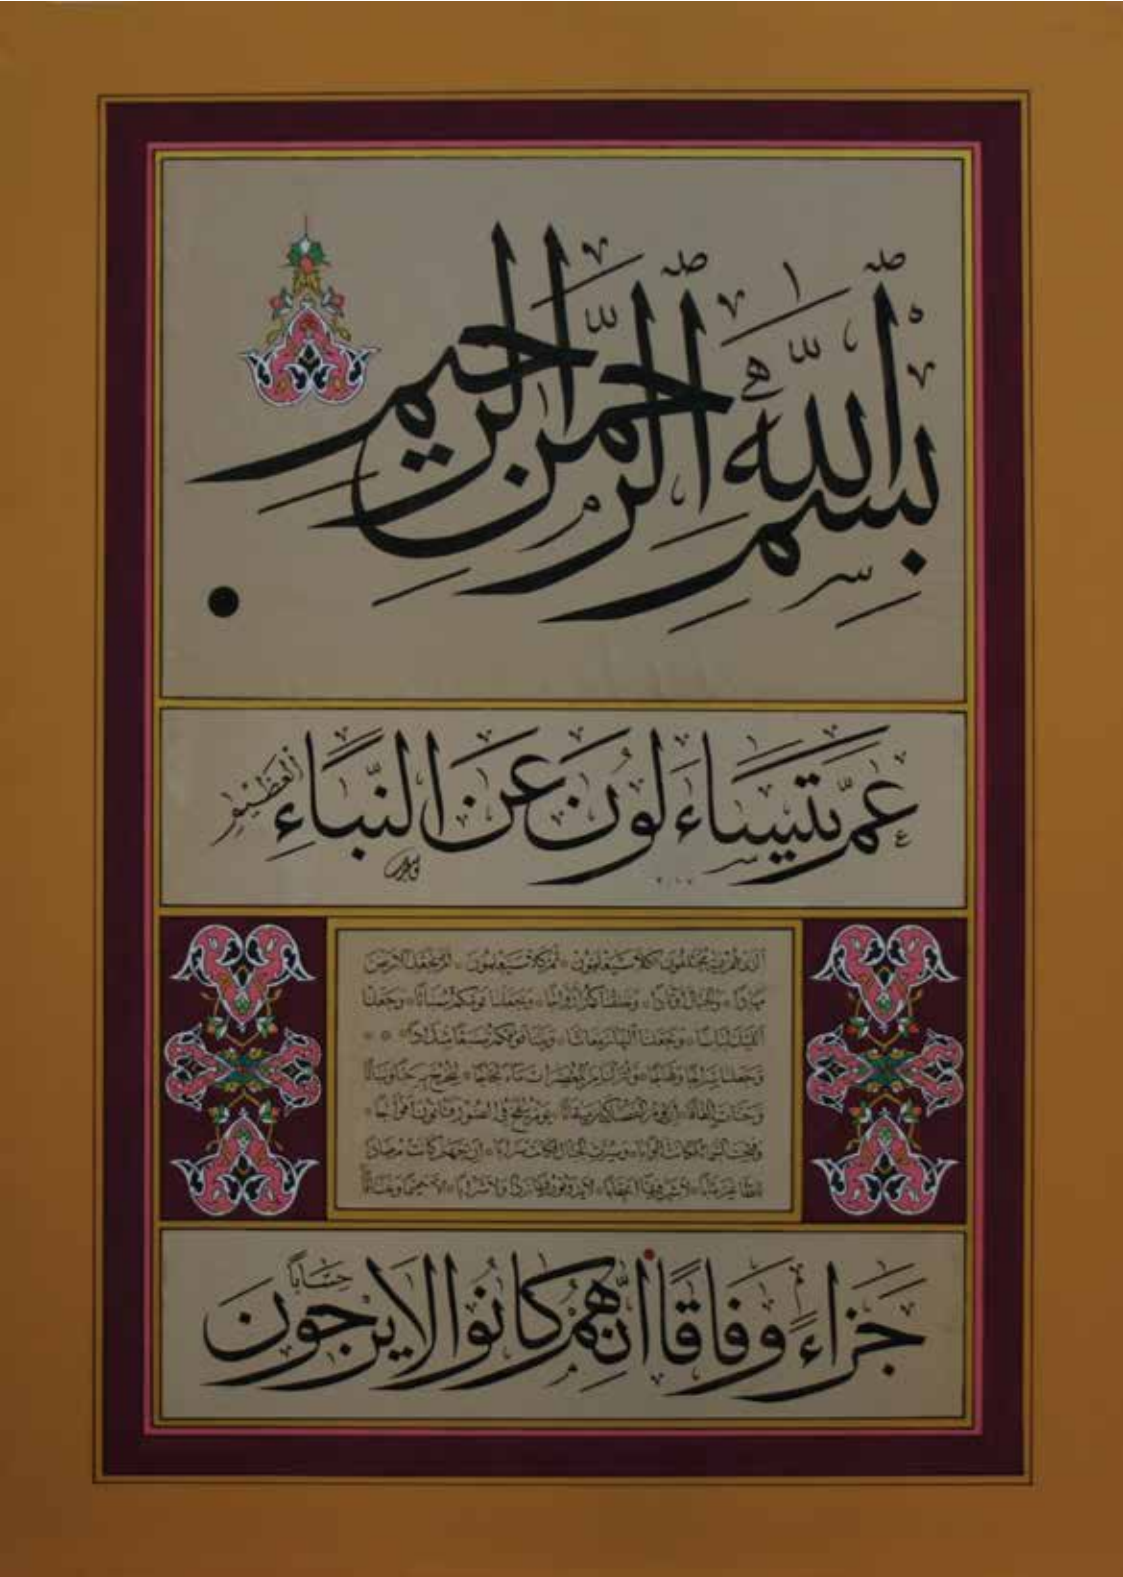 بِسْمِ اللَّهِ الرَّحْمٰنِ الرَّحِيمِ
عَمَّ يَتَسَاءَلُونَ عَنِ النَّبَاءِ الْعَظِيمِ
الذي هم فيه مختلفون * كلا سيعلمون * ثم كلا سيعلمون * الم نجعل الارض
مهادا * والجبال اوتادا * وخلقناكم ازواجا * وجعلنا نومكم سباتا * وجعلنا
الليل لباسا * وجعلنا النهار معاشا * وبنينا فوقكم سبعا شدادا * *
وجعلنا سراجا وهاجا * وانزلنا من المعصرات ماء ثجاجا * لنخرج به حبا ونباتا
وجنات الفافا * ان يوم الفصل كان ميقاتا * يوم ينفخ في الصور فتأتون افواجا *
وفتحت السماء فكانت ابوابا * وسيرت الجبال فكانت سرابا * ان جهنم كانت مرصادا
للطاغين مآبا * لابثين فيها احقابا * لا يذوقون فيها بردا ولا شرابا * الا حميما وغساقا
جَزَاءً وَفَاقًا اِنَّهُمْ كَانُوا لَا يَرْجُونَ حِسَابًا